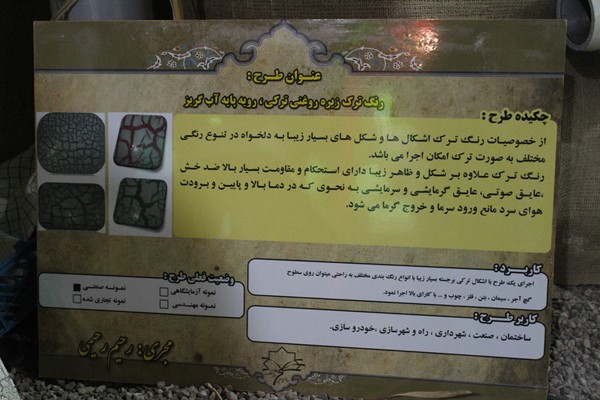 عنوان طرح :
رنگ ترک زیره روغنی ترکی ، رویه پایه آب گریز
چکیده طرح :
از خصوصیات رنگ ترک اشکال ها و شکل های بسیار زیبا به دلخواه در تنوع رنگی
مختلف به صورت ترک امکان اجرا می باشد.
رنگ ترک علاوه بر شکل و ظاهر زیبا دارای استحکام و مقاومت بسیار بالا ضد خش
،عایق صوتی، عایق گرمایشی و سرمایشی به نحوی که در دما بالا و پایین و برودت
هوای سرد مانع ورود سرما و خروج گرما می شود.
کاربرد :
اجرای یک طرح با اشکال ترکی برجسته بسیار زیبا با انواع رنگ بندی مختلف به راحتی میتوان روی سطوح
گچ آجر ، سیمان ، بتن ، فلز ، چوب و ... با کارای بالا اجرا نمود.
کاربر طرح :
ساختمان ، صنعت ، شهرداری ، راه و شهرسازی ،خودرو سازی.
وضعیت فعلی طرح :
نمونه آزمایشگاهی
نمونه صنعتی
نمونه مهندسی
نمونه تجاری شده
مجری : رحیم رحیمی